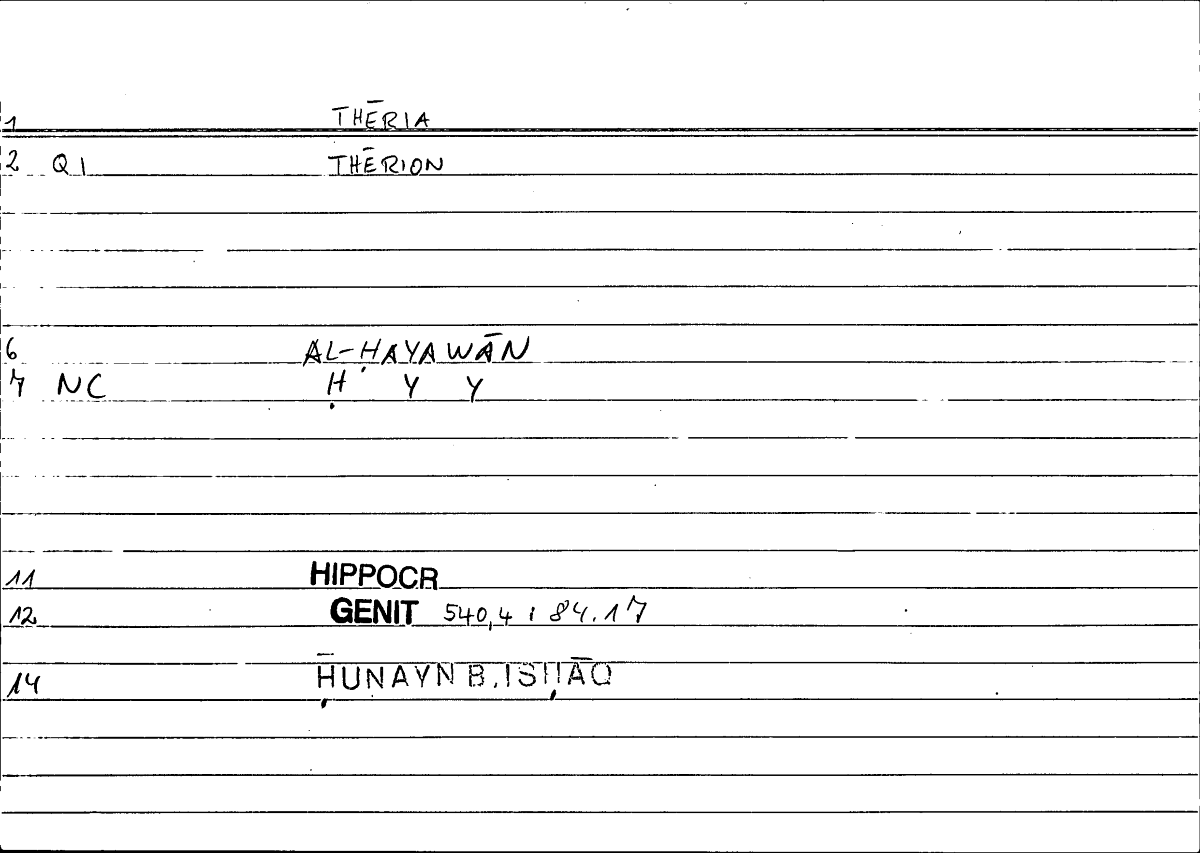 1 THĒRIA
2 Q1 THĒRION
6 AL-ḤAYAWĀN
7 NC Ḥ Y Y
11 HIPPOCR
12 GENIT 540,4 ; 84.17
14 ḤUNAYN B. ISḤĀQ